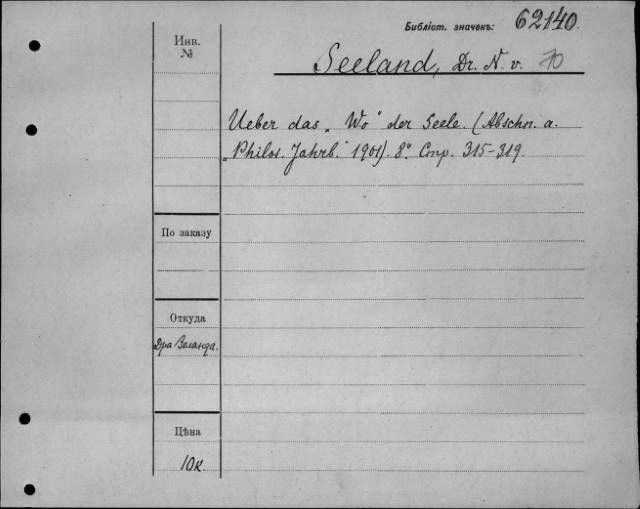 Библіот. значекъ: 62140.
Инв.
№
Seeland, Dr. N. v.
Ueber das „Wo“ der Seele. (Abschn. a.
„Philos. Jahrb.“ 1901). 8° Стр. 315-319.
По заказу
Откуда
Дра Зеланда.
Цѣна
10к